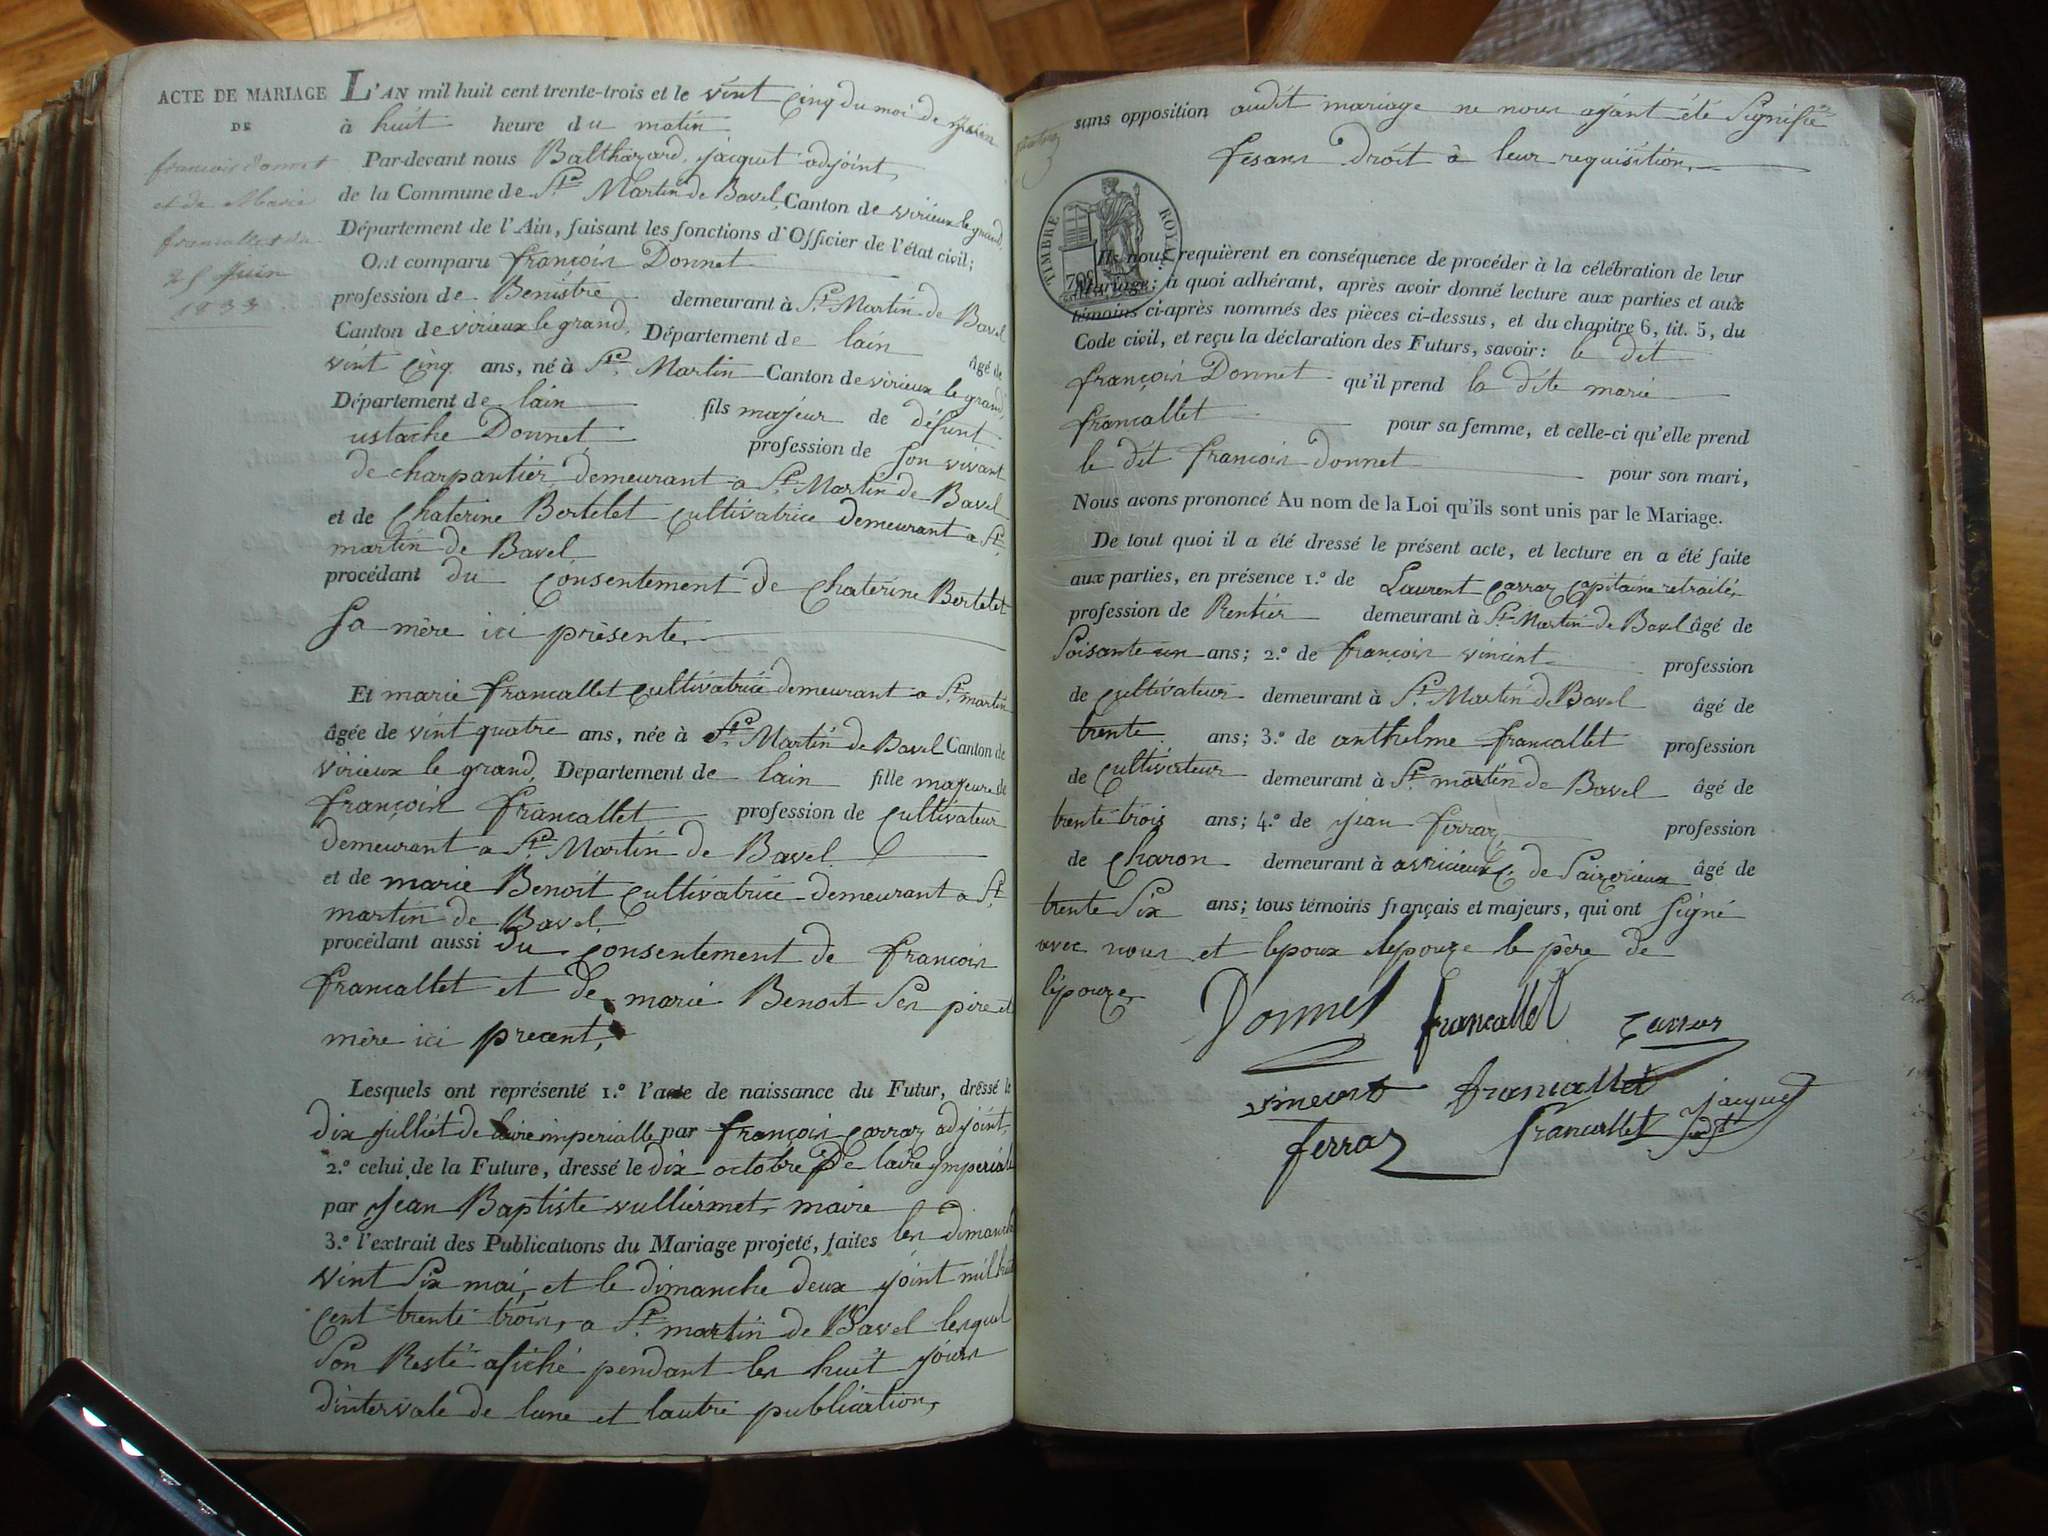 ACTE DE MARIAGE
DE
francois donnet
et de Marie
francallet du
25 Juin
1833
L'AN mil huit cent trente-trois et le vint cinq du moi de juin
à huit heure du matin
Par-devant nous Balthazard jacquet adjoint
de la Commune de St. Martin de Bavel, Canton de virieux le grand,
Département de l'Ain, faisant les fonctions d'Officier de l'état civil;
Ont comparu françois Donnet
profession de Benistre demeurant à St. Martin de Bavel
Canton de virieux le grand, Département de lain âgé de
vint cinq ans, né à St. Martin Canton de virieux le grand,
Département de lain fils majeur de défunt
ustache Donnet profession de son vivant
de charpantier demeurant a St. Martin de Bavel
et de Chaterine Bertelet cultivatrice demeurant a St.
martin de Bavel
procédant du consentement de Chaterine Bertelet
sa mère ici présente,
Et marie francallet cultivatrice demeurant a St. martin
âgée de vint quatre ans, née à St. Martin de Bavel Canton de
virieux le grand, Departement de lain fille majeure de
françois francallet profession de cultivateur
demeurant a St. Martin de Bavel
et de marie Benoit cultivatrice demeurant a St.
martin de Bavel
procédant aussi du consentement de francois
francallet et de marie Benoit ses père et
mère ici precent,
Lesquels ont représenté 1.º l'acte de naissance du Futur, dressé le
dix julliet de laire imperialle par françois carraz adjoint,
2.º celui de la Future, dressé le dix octobre de laire imperiale
par jean Baptiste vulliermet, maire
3.º l'extrait des Publications du Mariage projeté, faites les dimanche
vint six mai, et le dimanche deux joint mil huit
cent trente trois, a St. martin de Bavel lesquel
son Resté afiché pendant les huit jours
dintervale de lune et lautre publication,
sans opposition audit mariage ne nous ayant été signifié
fesans droit à leur requisition,
TIMBRE ROYAL
70c
Ils nous requièrent en conséquence de procéder à la célébration de leur
Mariage; à quoi adhérant, après avoir donné lecture aux parties et aux
témoins ci-après nommés des pièces ci-dessus, et du chapitre 6, tit. 5, du
Code civil, et reçu la déclaration des Futurs, savoir: le dit
françois Donnet qu'il prend la dite marie
francallet pour sa femme, et celle-ci qu'elle prend
le dit francois donnet pour son mari,
Nous avons prononcé Au nom de la Loi qu'ils sont unis par le Mariage.
De tout quoi il a été dressé le présent acte, et lecture en a été faite
aux parties, en présence 1.º de Laurent carraz capitaine retraité,
profession de Rentier demeurant à St. Martin de Bavel âgé de
soisante un ans; 2.º de françois vincent profession
de cultivateur demeurant à St. Martin de Bavel âgé de
trente ans; 3.º de anthelme francallet profession
de cultivateur demeurant à St. martin de Bavel âgé de
trente trois ans; 4.º de jean ferraz profession
de charon demeurant à avricieux âgé de
trente six ans; tous témoins français et majeurs, qui ont signé
avec nous et lepoux lepouze le père de
lépouze,
Donnet francallet carraz
vincent francallet
ferraz francallet jacquet